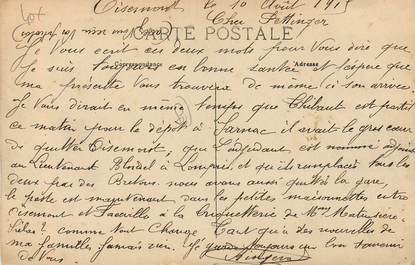 Oisemont le 10 Août 1915
Cher Pettinger
CARTE POSTALE
Je vous ecrit ces deux mots pour vous dire que
Correspondance Adresse
Je suis toujours en bonne santée et j'espère que
ma présente vous trouveras de même à son arrivée.
Je vous dirait en même temps que Thibaut est partit
ce matin pour le dépôt à Jarnac il avait le gros cœur
de quittée Oisemont, que L'adjudant est nommé
au Lieutenant à et qu'ils remplacé tous les
deux par des Bretons. nous avons aussi quittés la gare,
le poste est maintenant dans les petites maisonnettes entre
Oisemont et la Briquetterie de
Hélas! comme tout change Tant qu'à des nouvelles de
ma famille, jamais rien. toujours un bon souvenir
de vous